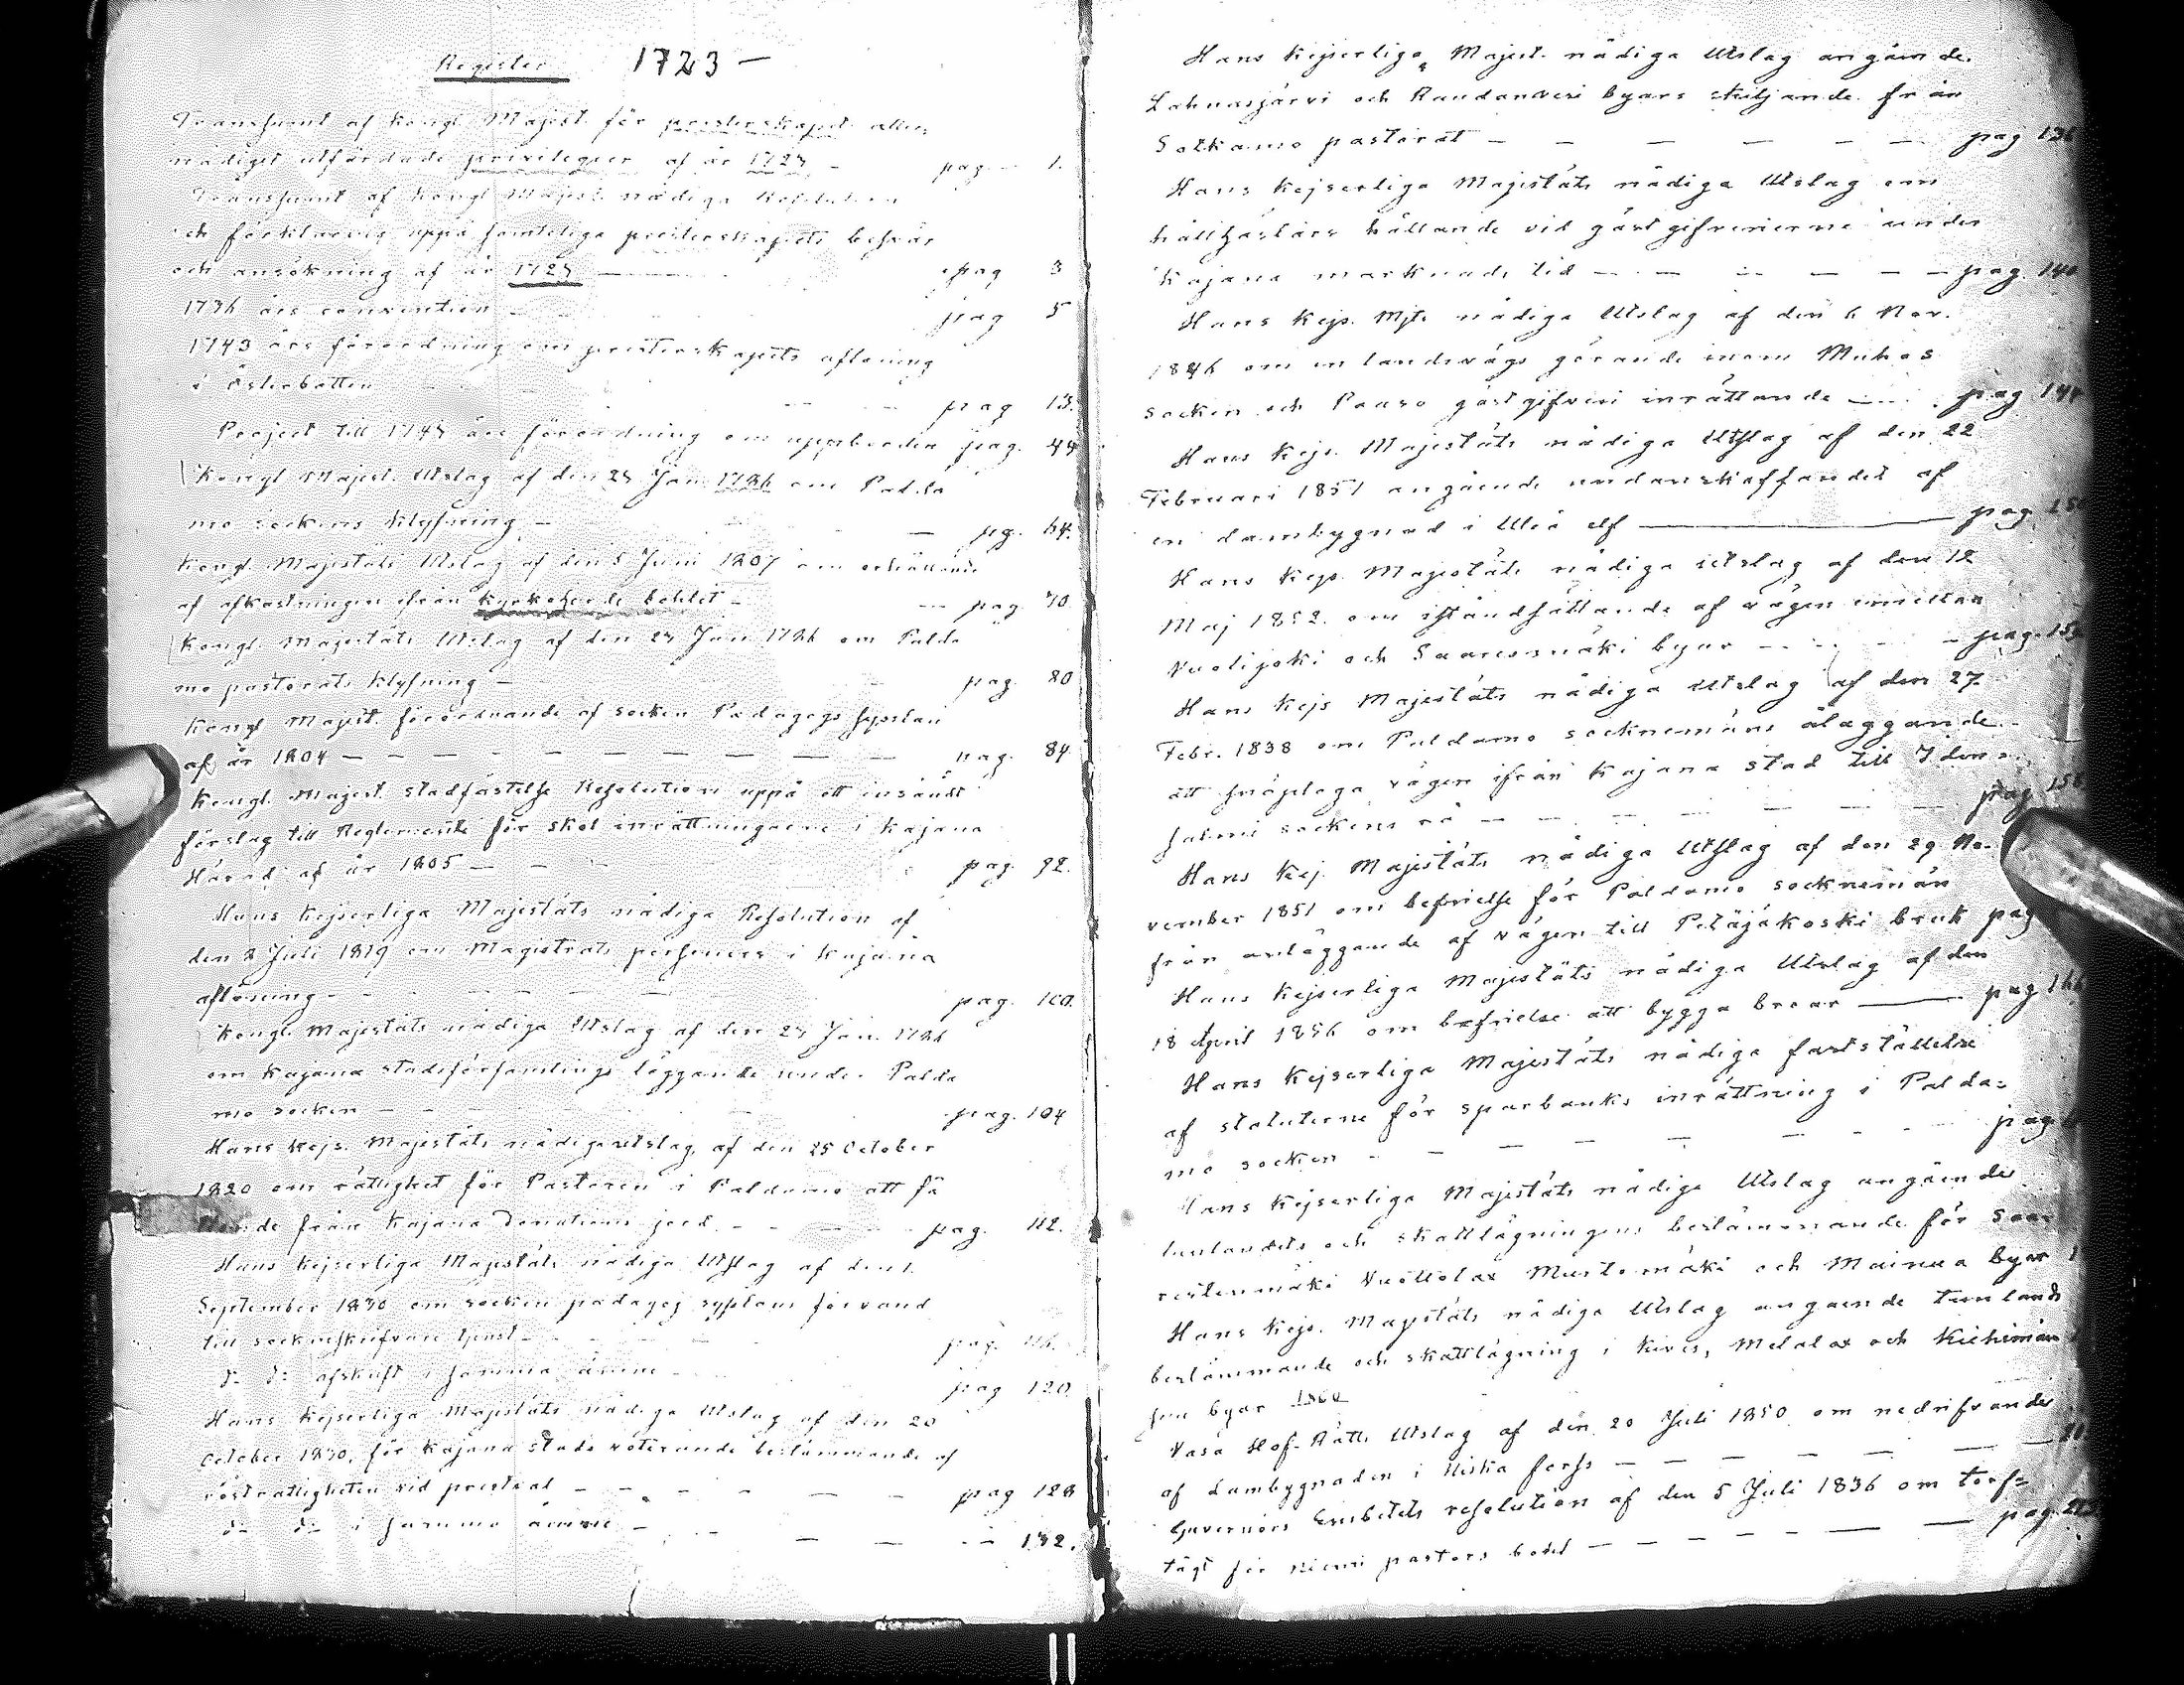 Register 1723 —
Transsumt af Kongl. Majest. för presterskapet aller-
nådigst utfärdade privilegier af år 1723 — pag. — 1.
Transsumt af Kongl. Majest. nådiga Resolution
och förklaring uppå samteliga presterskapets besvär
och ansökning af år 1723 — pag 3
1736 års convention pag 5
1743 års förordning om presterskapets aflöning
i Österbotten pag 13.
Project till 1743 års förordning om uppbörden pag. 44
Kongl Majest. Utslag af den 23 Jan. 1786 om Palda
mo sockens klyfning — pg. 64.
Kongl. Majestäts Utslag af den 5 Juni 1807 om
af afkastningen ifrån Kyrkoherde bohlet — pag. 70
Kongl. Majestäts Utslag af den 23 Jan 1786 om Palda
mo pastorats klyfning — pag. 80
Kongl Majest. förordnande af socken Pædagogs sysslan
af år 1804 — pag. 84.
Kongl. Majest. stadfästelse Resolution uppå ett insändt
förslag till Reglemente för skol inrättningarne i Kajana
Härad af år 1805 — pag. 92.
Hans Kejserliga Majestäts nådiga Resolution af
den 2 Juli 1819 om Magistrats personers i Kajana
aflöning — pag. 100.
Kongl. Majestäts nådiga Utslag af den 23 Jan. 1786
om Kajana stadsförsamlings läggande under Palda
mo socken — pag. 104
Hans Kejs. Majestäts nådiga utslag, af den 25 October
1820 om rättighet för Pastoren i Paldamo att få
från Kajana Donations jord — pag. 112.
Hans Kejserliga Majestäts nådiga Utslag af den 1.
September 1830 om socken pædagog sysslans förvand
till sockneskrifvare tjenst — pag.
d:o d:o afskrift i samma ämne pag 120
Hans Kejserliga Majestäts nådiga Utslag af den 20
October 1830, för Kajana stads voterande bestämmande af
rösträttigheten vid prestval — pag 128
d:o d:o i samma ämne — 132.
Hans Kejserliga Majest. nådiga Utslag angåen de.
Lahnasjärvi och Raudanvesi byars skiljande från
Sotkamo pastorat — pag 136
Hans Kejserliga Majestäts nådiga Utslag om
hållhästars hållande vid gästgifverierne under
Kajana marknads tid — pag. 140
Hans Kejs. Mjts nådiga Utslag af den 6 Nov.
1846 om en landsvägs görande inom Muhos
socken och Paaso gästgifveri inrättande — pag 144
Hans Kejs. Majestäts nådiga Utslag af den 22
Februari 1851 angående undanskaffandet af
en dambygnad i Uleå elf — pag. 150
Hans Kejs. Majestäts nådiga utslag af den 12
Maj 1852. om iståndsättande af vägen emellan
Vuolijoki och Saaresmäki byar — pag.
Hans Kejs Majestäts nådiga Utslag af den 27.
Febr. 1838 om Paldamo socknemäns åläggande
att snöploga vägen ifrån Kajana stad till Iden
salmi sockens rå — pag 158
Hans Kej. Majestäts nådiga Utslag af den 29 No-
vember 1851 om befrielse för Paldamo socknemän
från anläggande af vägen till Petäjäkoski bruk pag
Hans Kejserliga Majestäts nådiga Utslag af den
18 April 1856 om befrielse att bygga broar — pag 166
Hans Kejserliga Majestäts nådiga fastställelse
af statuterne för sparbanks inrättning i Palda=
mo socken — pag.
Hans Kejserliga Majestäts nådiga Utslag angåen de
tunlandets och skattläggningens bestämmande för Saa
restenmäki Vuottolax Mustomäki och Mainua byar
Hans Kejs. Majestäts nådiga Utslag angående tunlands
bestämmande och skattläggning i Kives, Melalax och Kiehimän
suu byar 1860
Vasa Hof-Rätts Utslag af den 20 Juli 1850 om nedrifvandet
af dambygnaden i Niska forss —
Guvernörs Embetets resolution af den 5 Juli 1836 om torf=
tägt för Niemi pastors bohl — pag.